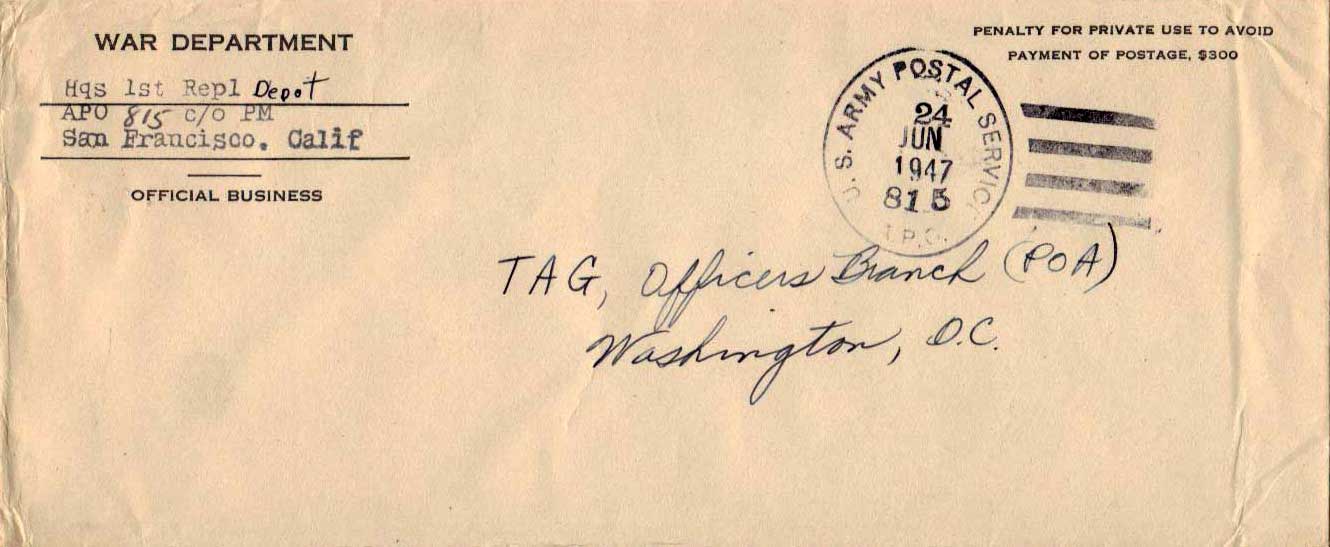 WAR DEPARTMENT
Hqs 1st Repl Depot
APO 815 c/o PM
San Francisco. Calif
OFFICIAL BUSINESS
PENALTY FOR PRIVATE USE TO AVOID
PAYMENT OF POSTAGE, $300
U. S. ARMY POSTAL SERVICE
24
JUN
1947
815
A.P.O.
TAG, Officers Branch (POA)
Washington, D.C.